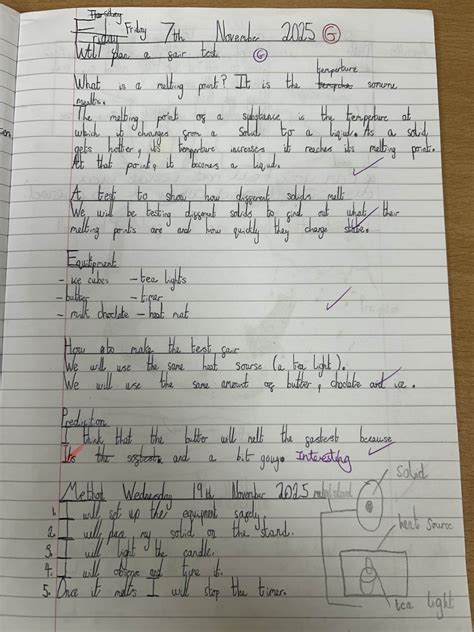 Thursday
Friday Friday 7th November 2025 G
Will plan a fair test G
temperture
What is a melting point? It is the someone
meltes.
The melting point of a substance is the temperture at
which it changes from a Solid to a liquid. As a solid
gets hotter, its temperture increases it reaches its melting point.
At that point, it becomes a liquid.
A test to show how different solids melt
We will be testing different solids to find out what their
melting points are and how quickly they change state.
Equitpment
- ice cubes - tea lights
- butter - timer
- milk choclate - heat mat
How to make the test fair
We will use the same heat sourse (a tea light).
We will use the same amount of butter, choclate and ice.
Prediction
I think that the butter will melt the fastest because
It's the softest and a bit gouy. Interesting
Method Wednesday 19th November 2025
1. I will set up the equipment safely.
2. I will place my solid on the stand.
3. I will light the candle.
4. I will observe and time it.
5. Once it melts I will stop the timer.
solid
heat sourse
tea light